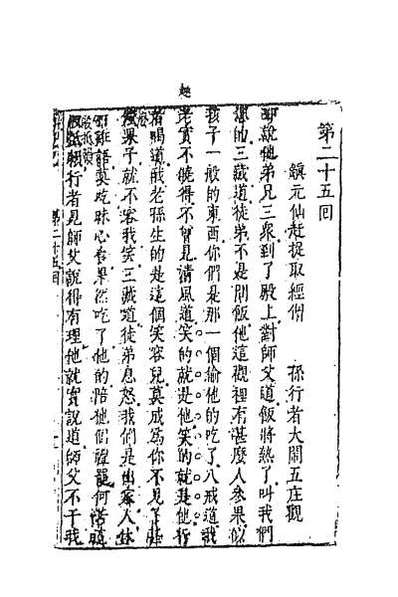 趣
第二十五回
鎮元仙赶捉取經僧　孫行者大鬧五庄觀
却說他弟兄三衆到了殿上對師父道飯將熟了叫我們
怎的三藏道徒弟不是問飯他這觀裡有甚麼人參果似
孩子一般的東西你們是那一個偷他的吃了八戒道我
老實不曉得不曾見清風道笑的就是他笑的就是他行
者喝道我老孫生的是這個笑容兒莫成爲你不見了甚
麼果子就不容我笑三藏道徒弟息怒我們是出家人休
打誑語莫吃昧心食果然吃了他的陪他個禮罷何苦這
般抵賴行者見師父說得有理他就實說道師父不干我
第二十五回